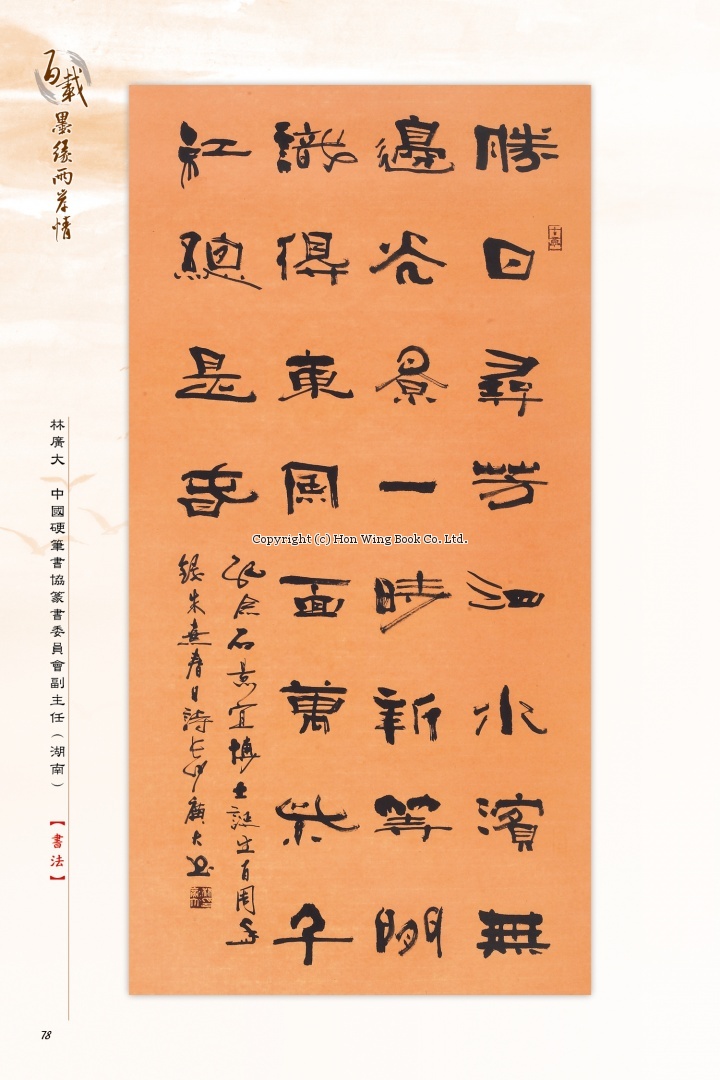 百載墨緣兩岸情
勝日尋芳泗水濱無
邊光景一時新等閒
識得東風面萬紫千
紅總是春
紀念石景宜博士誕生百周年
錄朱熹春日詩长沙廣大书
林廣大 中國硬筆書協篆書委員會副主任（湖南）【書法】
Copyright (c) Hon Wing Book Co. Ltd.
78